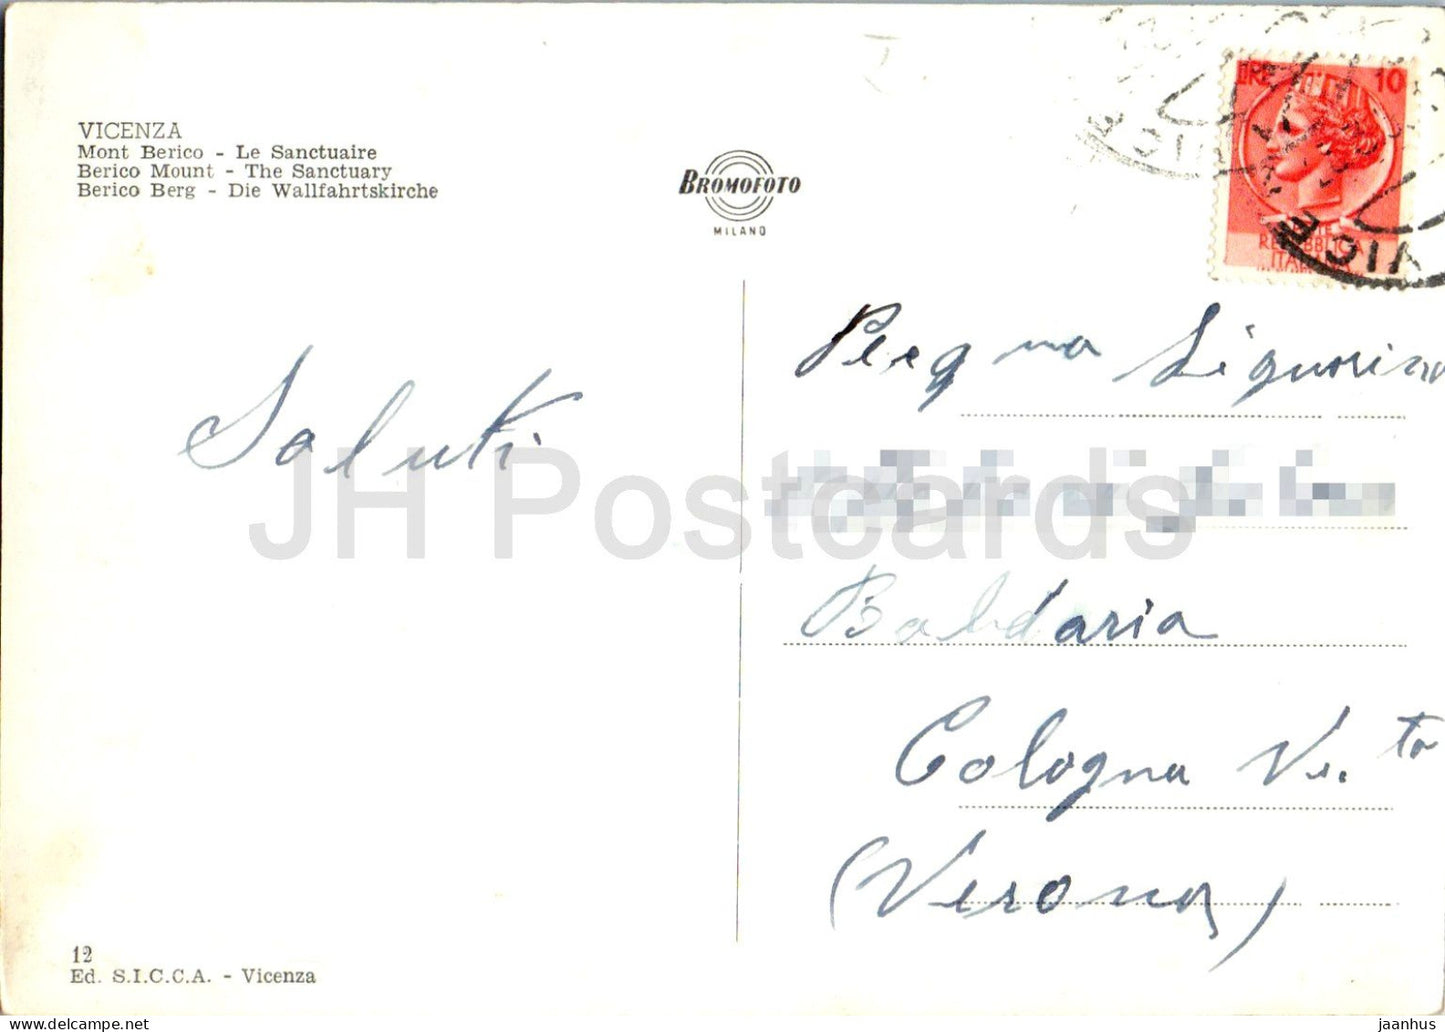 VICENZA
Mont Berico - Le Sanctuaire
Berico Mount - The Sanctuary
Berico Berg - Die Wallfahrtskirche
BROMOFOTO
MILANO
LIRE 10
REPUBBLICA
ITALIANA
VICE
Saluti
JH Postcards
Baldaria
Cologna Ve.ta
(Verona)
12
Ed. S.I.C.C.A. - Vicenza
jaanhus @ www.delcampe.net